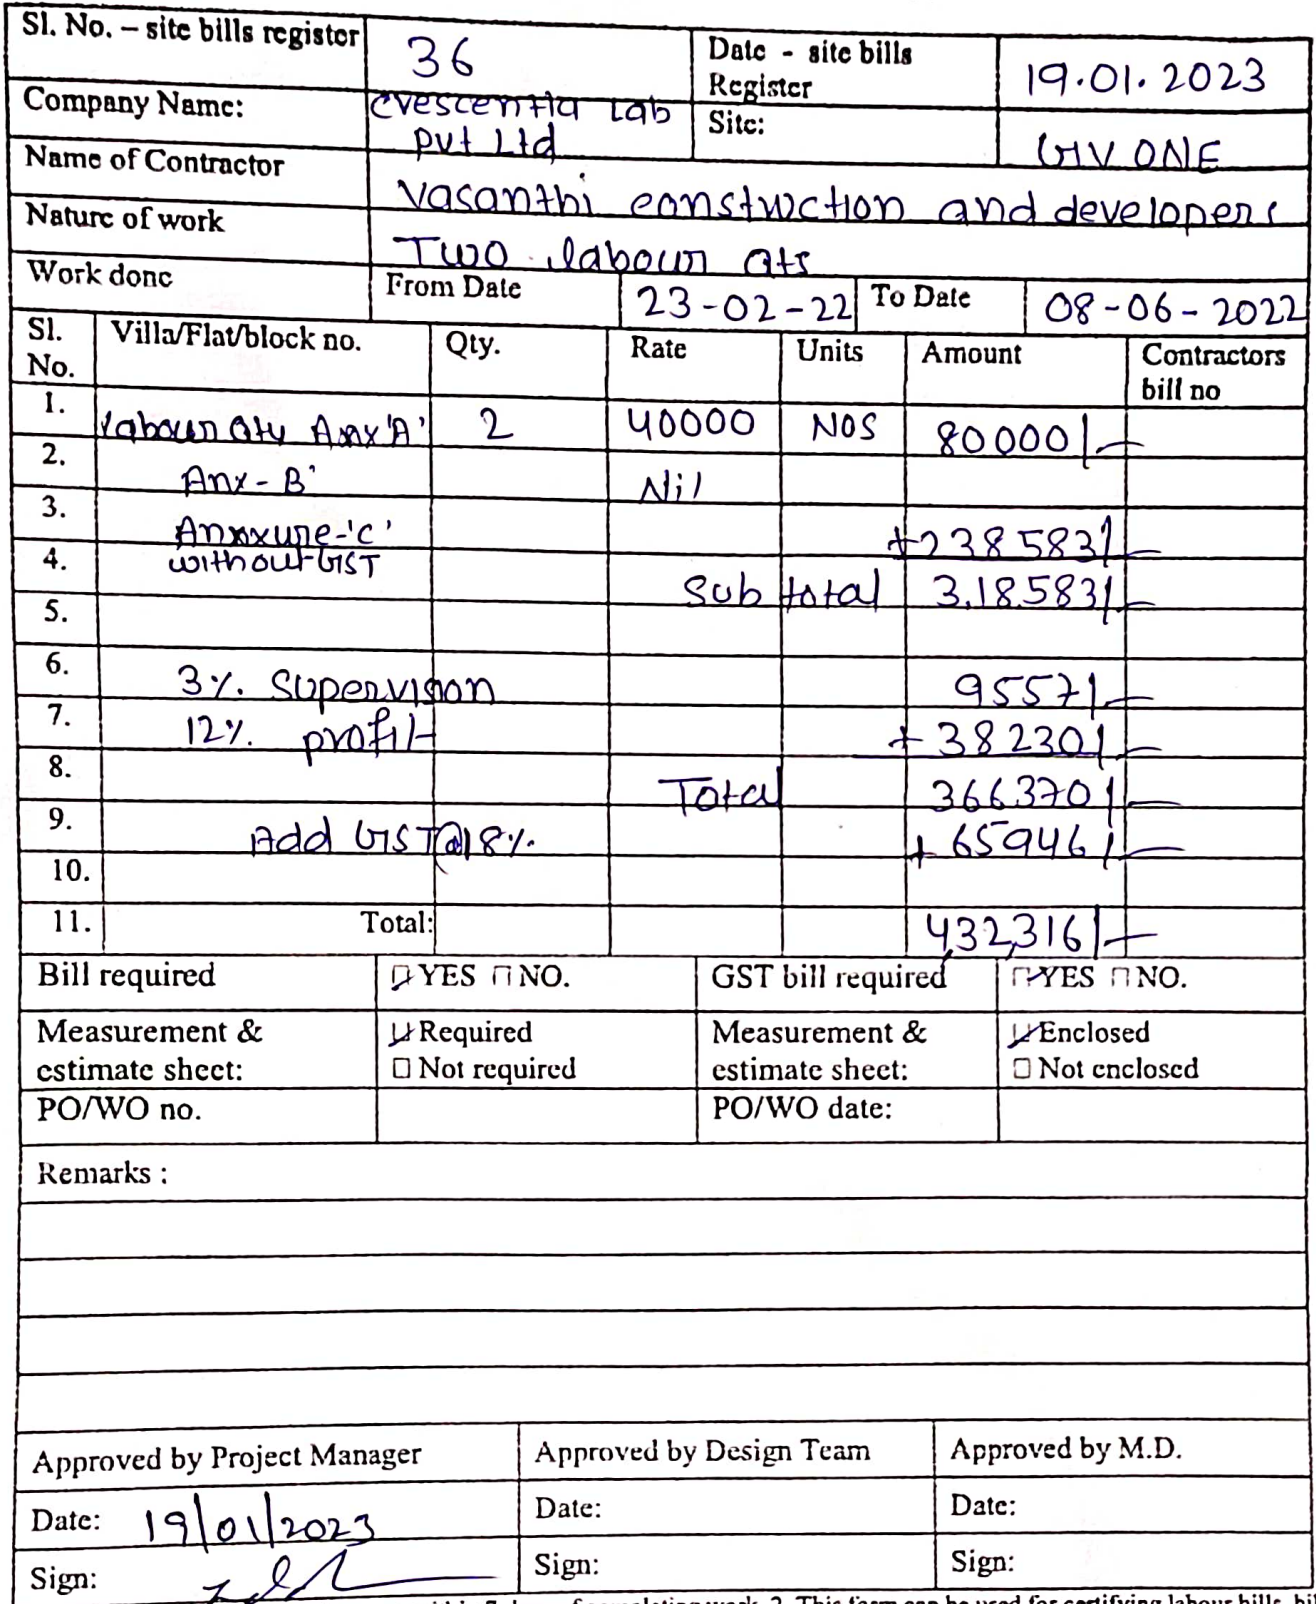 Sl. No. – site bills register 36 Date - site bills Register 19.01.2023
Company Name: Crescentia Lab Pvt Ltd Site: GV ONE
Name of Contractor Vasanthi construction and developers
Nature of work Two labour qts
Work done From Date 23-02-22 To Date 08-06-2022
Sl. No. Villa/Flat/block no. Qty. Rate Units Amount Contractors bill no
1. labour Qty Anx 'A' 2 40000 NOS 80000/-
2. Anx - B' Nil
3. Annxure-'C' +238583/-
4. without GST Sub total 3,18583/-
5.
6. 3%. Supervision 9557/-
7. 12%. profit + 38230/-
8. Total 366370/-
9. Add GST @18%. + 65946/-
10.
11. Total: 4,32,316/-
Bill required YES NO. GST bill required YES NO.
Measurement & estimate sheet: Required Not required Measurement & estimate sheet: Enclosed Not enclosed
PO/WO no. PO/WO date:
Remarks :
Approved by Project Manager Approved by Design Team Approved by M.D.
Date: 19/01/2023 Date: Date:
Sign: Sign: Sign:
This form can be used for certifying labour bills,